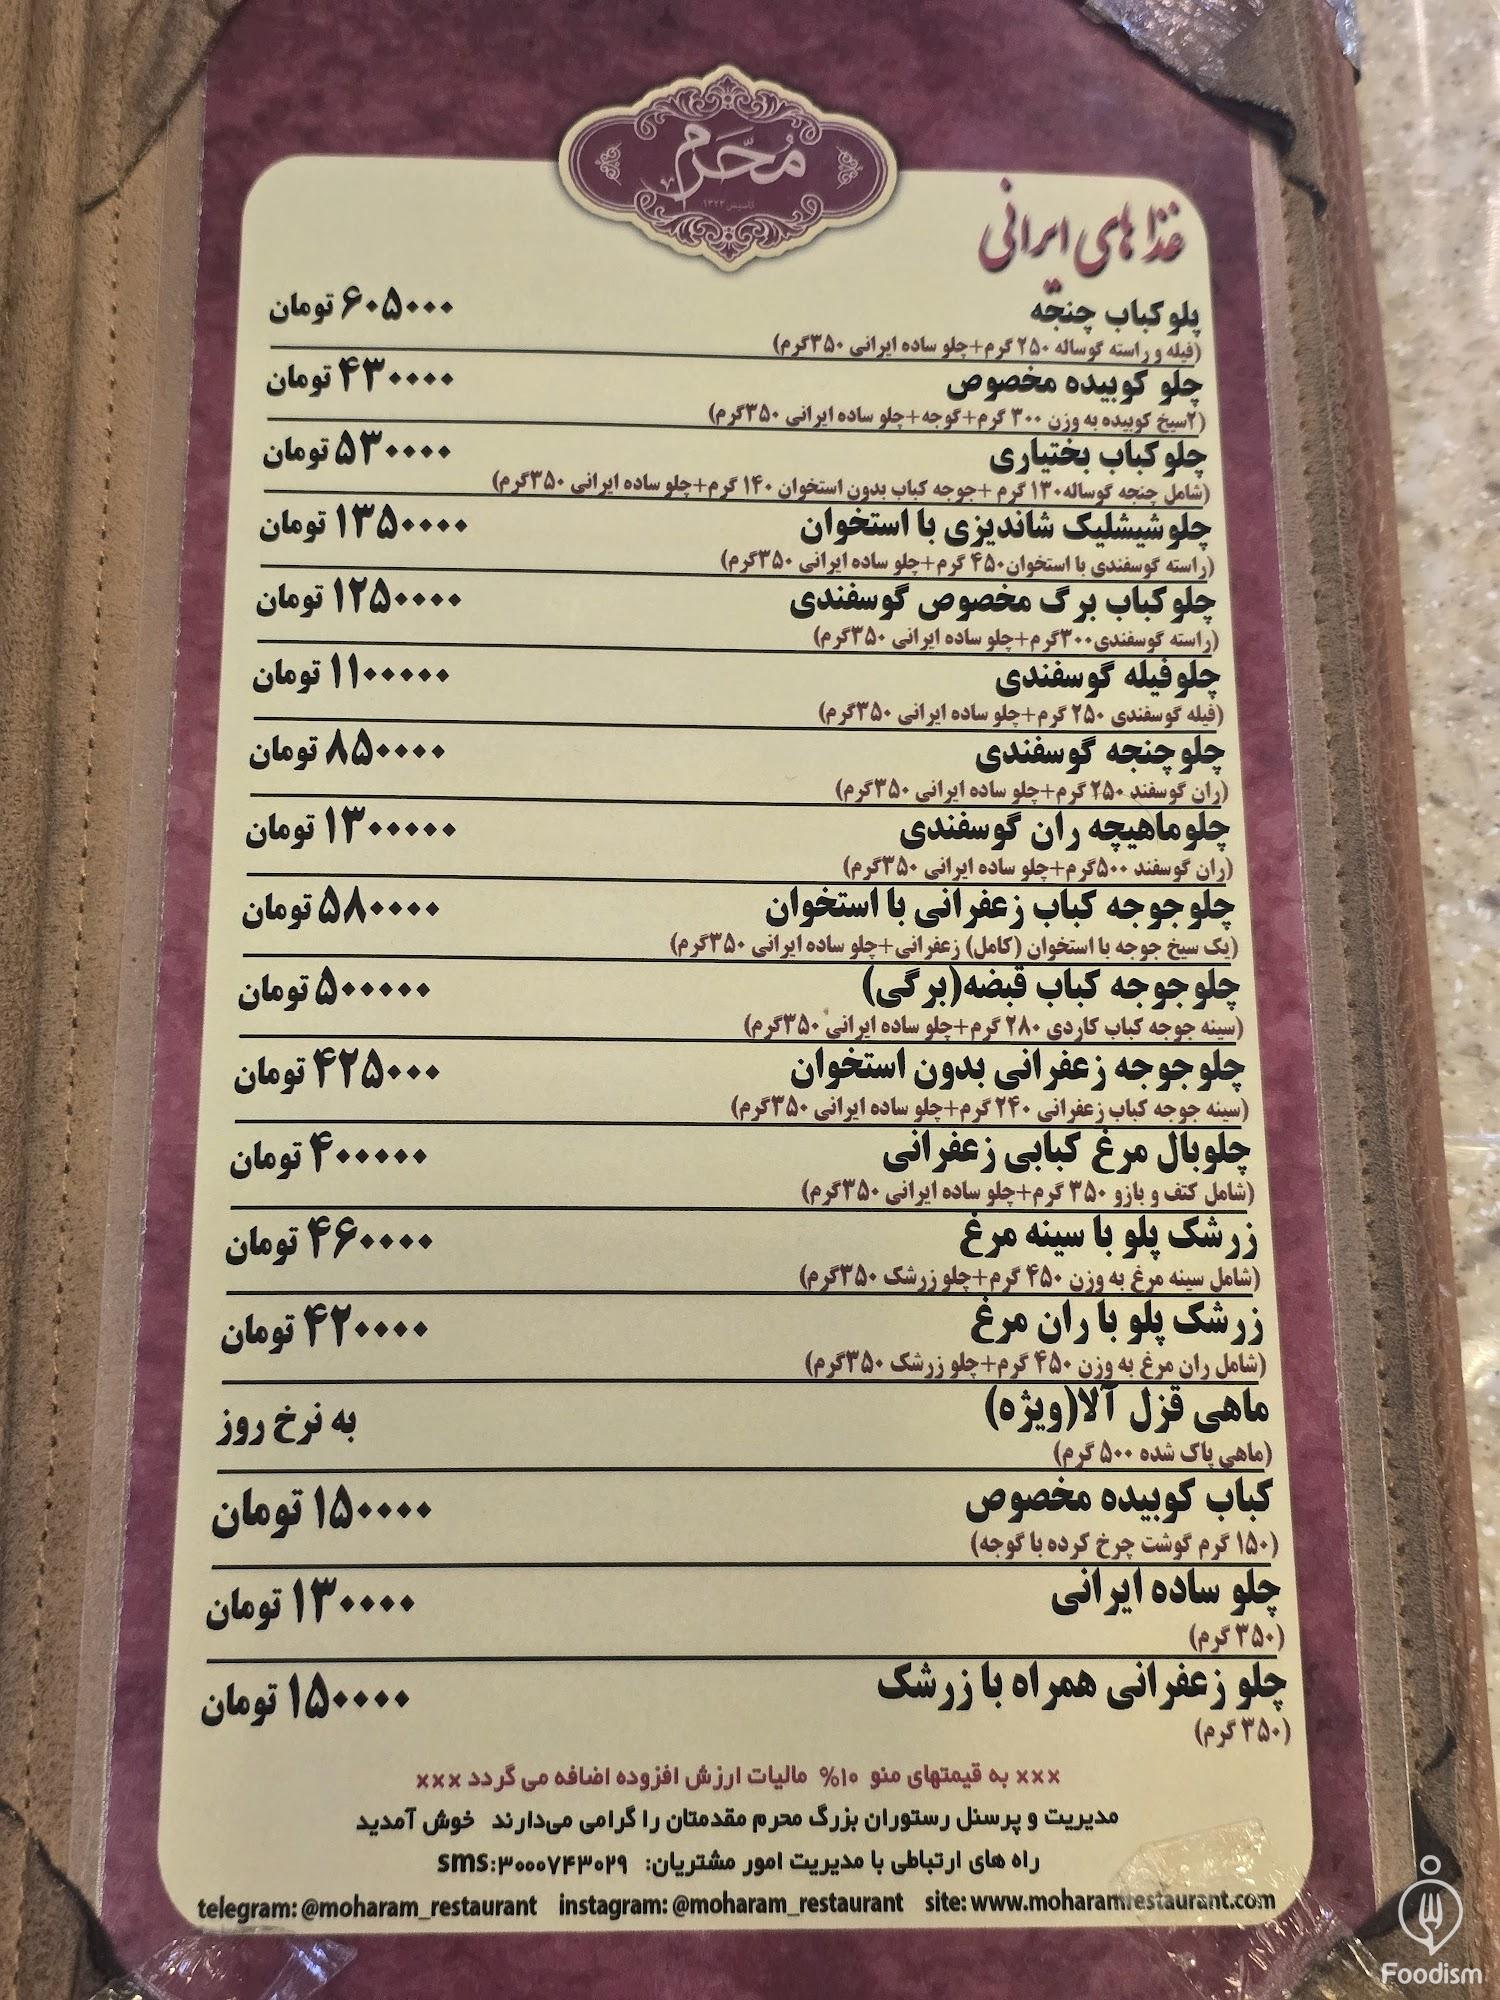 مُحَرَّم
تاسیس ۱۳۲۳
غذا های ایرانی
پلو کباب چنجه ۶۰۵۰۰۰ تومان
(فیله و راسته گوساله ۲۵۰ گرم+چلو ساده ایرانی ۳۵۰گرم)
چلو کوبیده مخصوص ۴۳۰۰۰۰ تومان
(۲سیخ کوبیده به وزن ۳۰۰ گرم+گوجه+چلو ساده ایرانی ۳۵۰گرم)
چلو کباب بختیاری ۵۳۰۰۰۰ تومان
(شامل چنجه گوساله۱۳۰ گرم +جوجه کباب بدون استخوان ۱۴۰ گرم+چلو ساده ایرانی ۳۵۰گرم)
چلو شیشلیک شاندیزی با استخوان ۱۳۵۰۰۰۰ تومان
(راسته گوسفندی با استخوان۴۵۰ گرم+چلو ساده ایرانی ۳۵۰گرم)
چلو کباب برگ مخصوص گوسفندی ۱۲۵۰۰۰۰ تومان
(راسته گوسفندی۳۰۰گرم+چلو ساده ایرانی ۳۵۰گرم)
چلوفیله گوسفندی ۱۱۰۰۰۰۰ تومان
(فیله گوسفندی ۲۵۰ گرم+چلو ساده ایرانی ۳۵۰گرم)
چلو چنجه گوسفندی ۸۵۰۰۰۰ تومان
(ران گوسفند ۲۵۰ گرم+چلو ساده ایرانی ۳۵۰گرم)
چلوماهیچه ران گوسفندی ۱۳۰۰۰۰۰ تومان
(ران گوسفند ۵۰۰گرم+چلو ساده ایرانی ۳۵۰گرم)
چلوجوجه کباب زعفرانی با استخوان ۵۸۰۰۰۰ تومان
(یک سیخ جوجه با استخوان (کامل) زعفرانی+چلو ساده ایرانی ۳۵۰گرم)
چلوجوجه کباب قبضه(برگی) ۵۰۰۰۰۰ تومان
(سینه جوجه کباب کاردی ۲۸۰ گرم+چلو ساده ایرانی ۳۵۰گرم)
چلوجوجه زعفرانی بدون استخوان ۴۲۵۰۰۰ تومان
(سینه جوجه کباب زعفرانی ۲۴۰ گرم+چلو ساده ایرانی ۳۵۰گرم)
چلوبال مرغ کبابی زعفرانی ۴۰۰۰۰۰ تومان
(شامل کتف و بازو ۳۵۰ گرم+چلو ساده ایرانی ۳۵۰گرم)
زرشک پلو با سینه مرغ ۴۶۰۰۰۰ تومان
(شامل سینه مرغ به وزن ۴۵۰ گرم+چلو زرشک ۳۵۰گرم)
زرشک پلو با ران مرغ ۴۲۰۰۰۰ تومان
(شامل ران مرغ به وزن ۴۵۰ گرم+چلو زرشک ۳۵۰گرم)
ماهی قزل آلا(ویژه) به نرخ روز
(ماهی پاک شده ۵۰۰ گرم)
کباب کوبیده مخصوص ۱۵۰۰۰۰ تومان
(۱۵۰ گرم گوشت چرخ کرده با گوجه)
چلو ساده ایرانی ۱۳۰۰۰۰ تومان
(۳۵۰ گرم)
چلو زعفرانی همراه با زرشک ۱۵۰۰۰۰ تومان
(۳۵۰ گرم)
××× به قیمتهای منو ۱۰% مالیات ارزش افزوده اضافه می گردد ×××
مدیریت و پرسنل رستوران بزرگ محرم مقدمتان را گرامی می‌دارند خوش آمدید
راه های ارتباطی با مدیریت امور مشتریان: sms:۳۰۰۰۷۴۳۰۲۹
telegram: @moharam_restaurant instagram: @moharam_restaurant site: www.moharamrestaurant.com
Foodism